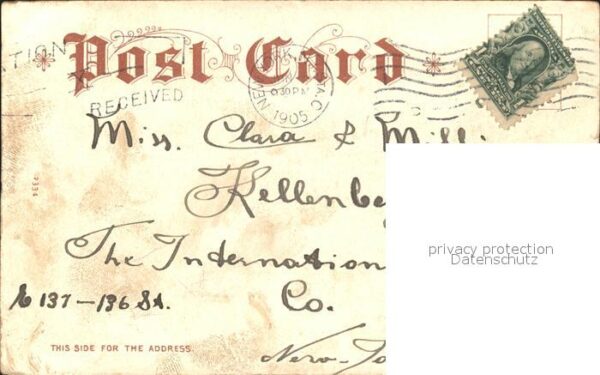 Post Card
RECEIVED
9 30 PM
1905
Miss. Clara & Milli
Kellenbe
privacy protection
Datenschutz
The Internation
E 137-136 St.
Co.
THIS SIDE FOR THE ADDRESS.
New-